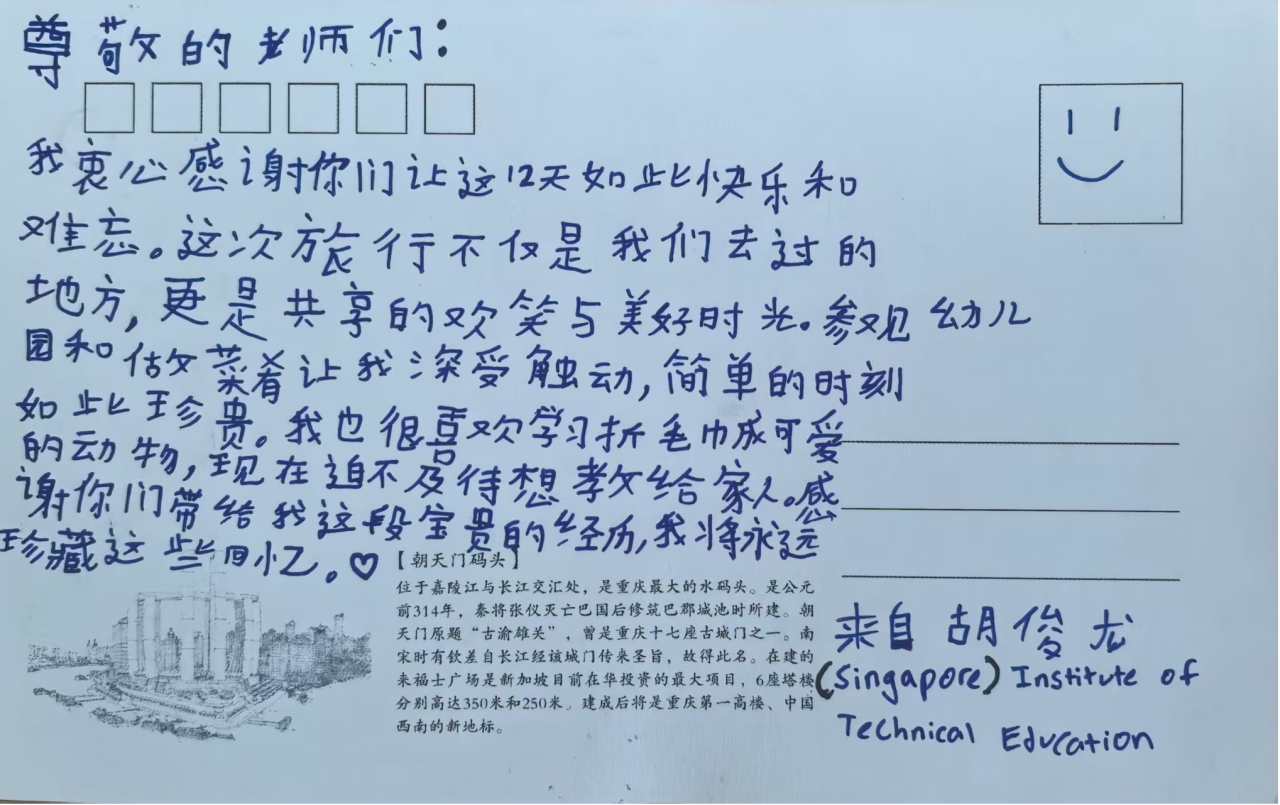 尊敬的老师们：
我衷心感谢你们让这12天如此快乐和
难忘。这次旅行不仅是我们去过的
地方，更是共享的欢笑与美好时光。参观幼儿
园和做菜肴让我深受触动，简单的时刻
如此珍贵。我也很喜欢学习折毛巾成可爱
的动物，现在迫不及待想教给家人。感
谢你们带给我这段宝贵的经历，我将永远
珍藏这些回忆。♡
【朝天门码头】
位于嘉陵江与长江交汇处，是重庆最大的水码头。是公元
前314年，秦将张仪灭亡巴国后修筑巴郡城池时所建。朝
天门原题“古渝雄关”，曾是重庆十七座古城门之一。南
宋时有钦差自长江经该城门传来圣旨，故得此名。在建的
来福士广场是新加坡目前在华投资的最大项目，6座塔楼
分别高达350米和250米。建成后将是重庆第一高楼、中国
西南的新地标。
来自 胡俊龙
(Singapore) Institute of
Technical Education